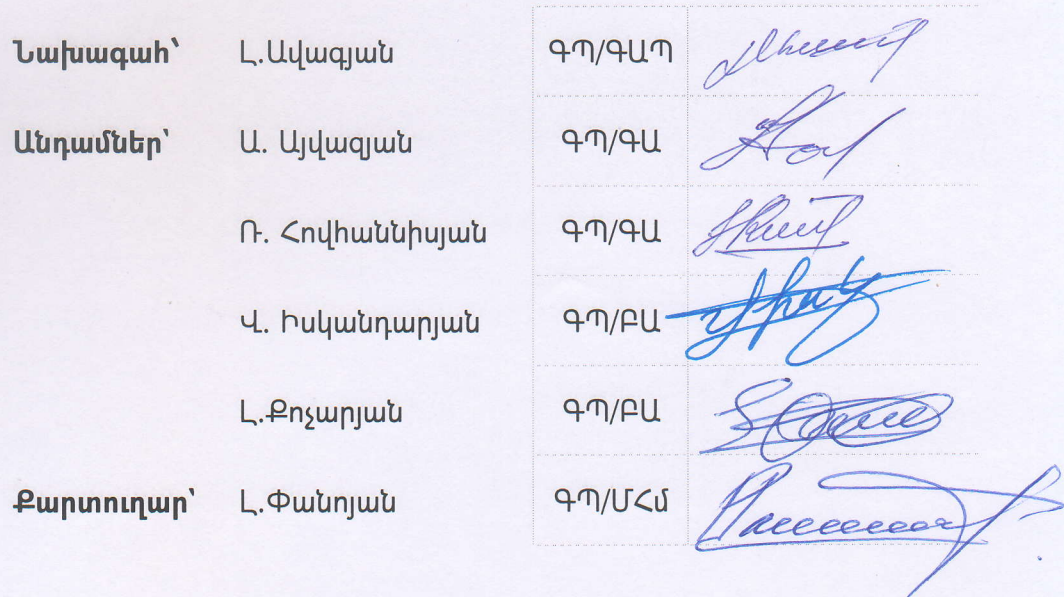 Նախագահ՝ Լ.Ավագյան ԳՊ/ԳԱՊ
Անդամներ՝ Ա. Այվազյան ԳՊ/ԳԱ
Ռ. Հովհաննիսյան ԳՊ/ԳԱ
Վ. Իսկանդարյան ԳՊ/ԲԱ
Լ.Քոչարյան ԳՊ/ԲԱ
Քարտուղար՝ Լ.Փանոյան ԳՊ/ՄՀմ